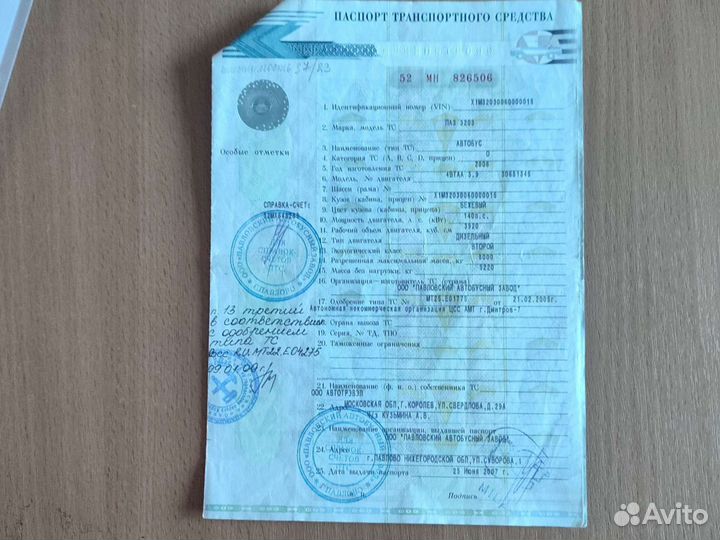 ПАСПОРТ ТРАНСПОРТНОГО СРЕДСТВА
52 МН 826506
1. Идентификационный номер (VIN) X1M32030060000016
2. Марка, модель ТС ПАЗ 3203
3. Наименование (тип ТС) АВТОБУС
4. Категория ТС (A, B, C, D, прицеп) D
5. Год изготовления ТС 2006
6. Модель, № двигателя 4BTAA 3,9 30681346
7. Шасси (рама) №
8. Кузов (кабина, прицеп) № X1M32030060000016
9. Цвет кузова (кабины, прицепа) БЕЖЕВЫЙ
10. Мощность двигателя, л. с. (кВт) 140л.с.
11. Рабочий объем двигателя, куб. см 3920
12. Тип двигателя ДИЗЕЛЬНЫЙ
13. Экологический класс ВТОРОЙ
14. Разрешенная максимальная масса, кг 8000
15. Масса без нагрузки, кг 5220
16. Организация-изготовитель ТС (страна)
ООО "ПАВЛОВСКИЙ АВТОБУСНЫЙ ЗАВОД"
17. Одобрение типа ТС № от 21.02.2005г.
Автономная некоммерческая организация ЦСС АМТ г.Дмитров-7
18. Страна вывоза ТС
19. Серия, № ТД, ТПО
20. Таможенные ограничения
21. Наименование (ф. и. о.) собственника ТС
ООО АВТОТРЭВЭЛ
22. Адрес МОСКОВСКАЯ ОБЛ,Г.КОРОЛЕВ,УЛ.СВЕРДЛОВА,Д.29А
Ч/З КУЗЬМИНА А.В.
23. Наименование организации, выдавшей паспорт
ООО "ПАВЛОВСКИЙ АВТОБУСНЫЙ ЗАВОД"
24. Адрес
г.ПАВЛОВО НИЖЕГОРОДСКОЙ ОБЛ,УЛ.СУВОРОВА,1
25. Дата выдачи паспорта 25 Июня 2007 г.
Подпись
Особые отметки
СПРАВКА-СЧЕТ:
ООО «ПАВЛОВСКИЙ АВТОБУСНЫЙ ЗАВОД»
ДЛЯ СПРАВОК-СЧЕТОВ ПТС
Г.ПАВЛОВО
п. 13 третий
в соответствие
с одобрением
типа ТС
RU.MT22.E04275
09.01.09 г.
ООО «ПАВЛОВСКИЙ АВТОБУСНЫЙ ЗАВОД»
ДЛЯ СПРАВОК-СЧЕТОВ ПТС
Г.ПАВЛОВО
Avito